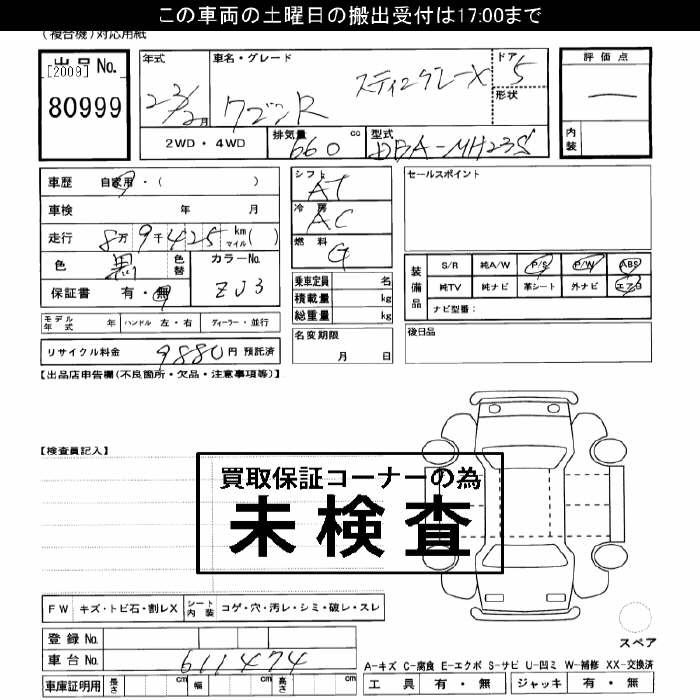 この車両の土曜日の搬出受付は17:00まで
(複合機)対応用紙
出品No.
[2009]
80999
年式
月
車名・グレード
ワゴンR
スティングレーX
ドア
5
形状
評価点
内装
2WD・4WD
排気量
660
cc
型式
DBA-MH23S
車歴 自家用・( )
車検 年 月
走行 8万9千425 km マイル( )
色 黒 色替
カラーNo.
ZJ3
保証書 有・無
モデル年式 年 ハンドル 左・右 ディーラー・並行
リサイクル料金 9880円 預託済
シフト
AT
冷房
AC
燃料
G
乗車定員 名
積載量 kg
総重量 kg
名変期限
月 日
セールスポイント
装備品
S/R 純A/W P/S P/W ABS
純TV 純ナビ 革シート 外ナビ エアB
ナビ型番:
後日品
【出品店申告欄(不良箇所・欠品・注意事項等)】
【検査員記入】
買取保証コーナーの為
未検査
FW キズ・トビ石・割レX シート内装 コゲ・穴・汚レ・シミ・破レ・スレ
登録No.
車台No. 611474
車庫証明用 長さ cm 幅 cm 高さ cm
スペア
A-キズ C-腐食 E-エクボ S-サビ U-凹ミ W-補修 XX-交換済
工具 有・無 ジャッキ 有・無